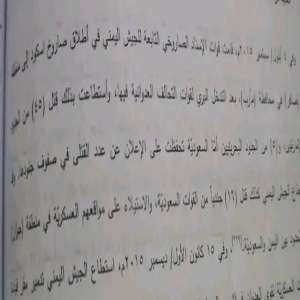 وفي ٤ أيلول/ سبتمبر ٢٠١٥م، قامت قوات الإسناد الصاروخي التابعة للجيش اليمني في أطلاق صاروخ اسكود إلى
في محافظة (مأرب)، بعد التدخل البري لقوات التحالف العدوانية فيها، وأستطاعت بذلك قتل (٤٥) من
من الجنود البحرينيين أما السعودية تحفظت على الإعلان عن عدد القتلى في صفوف جنودها،
الجيش اليمني كذلك قتل (١٦) جندياً من القوات السعودية، والاستيلاء على مواقعهم العسكرية في منطقة
بين اليمن والسعودية، وفي ١٥ كانون الأول/ ديسمبر ٢٠١٥م، استطاع الجيش اليمني تدمير مقر